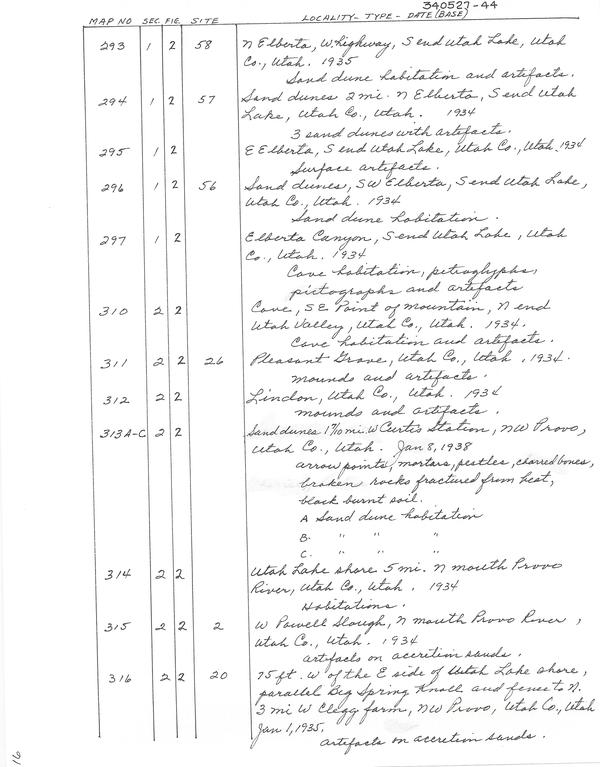 340527-44
MAP NO SEC. FIG. SITE LOCALITY - TYPE - DATE (BASE)
293 1 2 58 N Elberta, W. highway, S end Utah Lake, Utah
Co., Utah. 1935
Sand dune habitation and artefacts.
294 1 2 57 Sand dunes 2 mi. N Elberta, S end Utah
Lake, Utah Co., Utah. 1934
3 sand dunes with artefacts.
295 1 2 E Elberta, S end Utah Lake, Utah Co., Utah. 1934
Surface artefacts.
296 1 2 56 Sand dunes, SW Elberta, S end Utah Lake,
Utah Co., Utah. 1934
Sand dune habitation.
297 1 2 Elberta Canyon, S end Utah Lake, Utah
Co., Utah. 1934
Cave habitation, petroglyphs,
pictographs and artefacts
310 2 2 Cave, SE Point of mountain, N end
Utah Valley, Utah Co., Utah. 1934.
Cave habitation and artefacts.
311 2 2 26 Pleasant Grove, Utah Co., Utah. 1934.
mounds and artefacts.
312 2 2 Lindon, Utah Co., Utah. 1934
mounds and artefacts.
313A-C 2 2 Sand dunes 1 7/10 mi. W Curtis Station, NW Provo,
Utah Co., Utah. Jan 8, 1938
arrow points, mortars, pestles, charred bones,
broken rocks fractured from heat,
black burnt soil.
A Sand dune habitation
B. " " "
C. " " "
314 2 2 Utah Lake shore 5 mi. N mouth Provo
River, Utah Co., Utah. 1934
Habitations.
315 2 2 2 W Powell Slough, N mouth Provo River,
Utah Co., Utah. 1934
artifacts on accretion sands.
316 2 2 20 75 ft. W of the E side of Utah Lake shore,
parallel Big Spring Knoll and fence to N.
3 mi W Clegg farm, NW Provo, Utah Co., Utah
Jan 1, 1935.
artefacts on accretion sands.
16